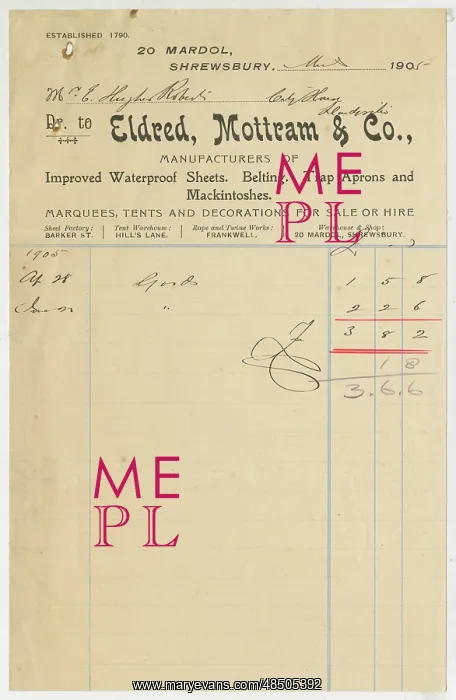 ESTABLISHED 1790.
20 MARDOL,
SHREWSBURY, 1905
Mr. E. Hughes Roberts
Dr. to Eldred, Mottram & Co.,
MANUFACTURERS OF
Improved Waterproof Sheets. Belting. Trap Aprons and
Mackintoshes.
MARQUEES, TENTS AND DECORATIONS FOR SALE OR HIRE
Sheet Factory: BARKER ST. Tent Warehouse: HILL'S LANE. Rope and Twine Works: FRANKWELL. Warehouse & Shop: 20 MARDOL, SHREWSBURY.
ME
PL
1905
Ap 28 Goods 1 5 8
" 2 2 6
3 8 2
1 8
3.6.6
ME
PL
www.maryevans.com/48505392